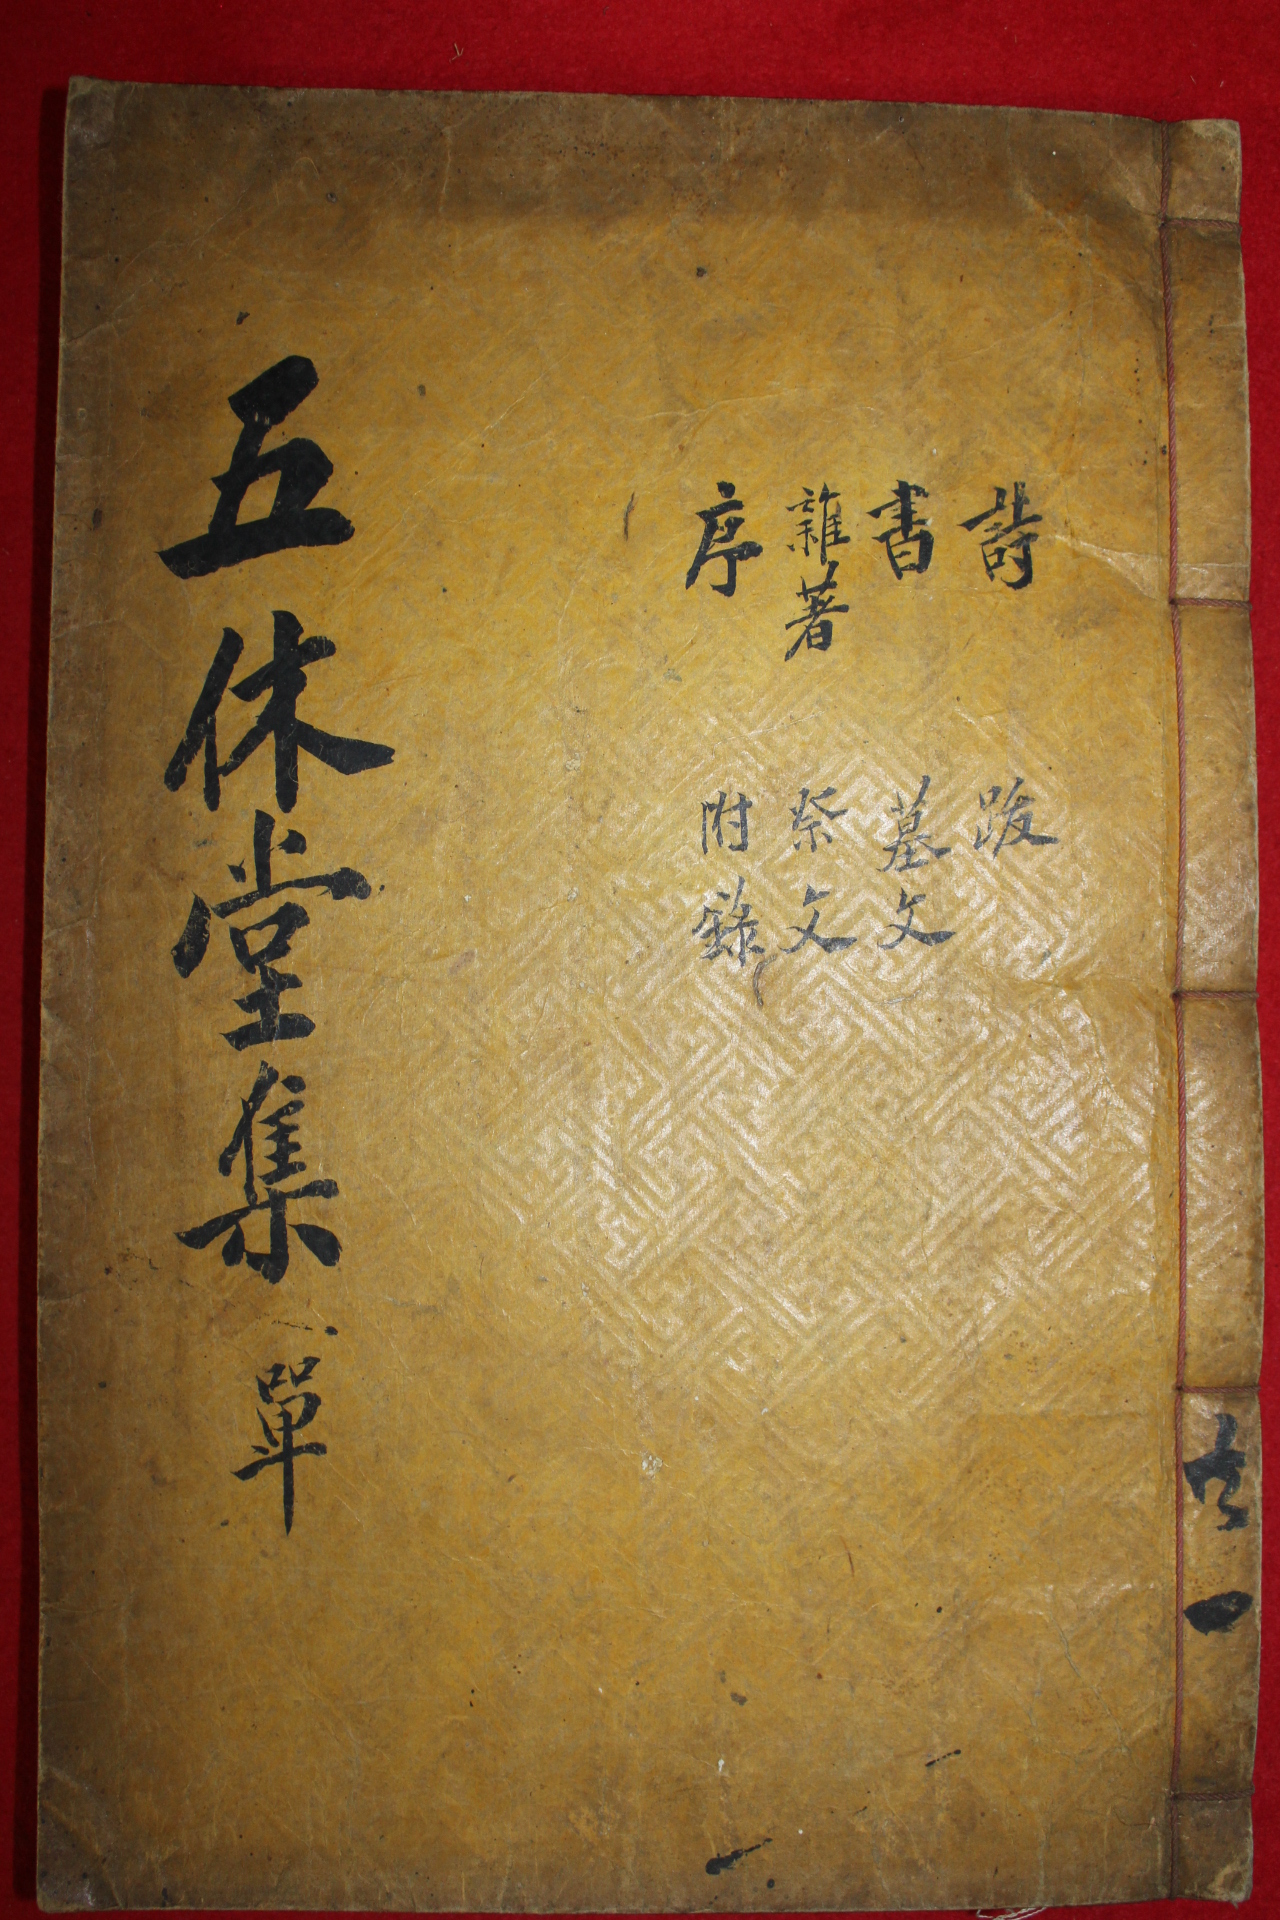 詩
書
雜著
序
跋
墓文
祭文
附錄
五休堂集 單
共一